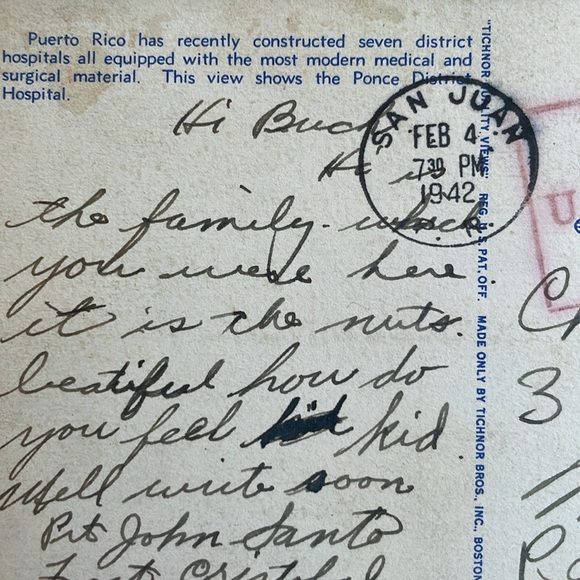 Puerto Rico has recently constructed seven district
hospitals all equipped with the most modern medical and
surgical material. This view shows the Ponce District
Hospital.
SAN JUAN
FEB 4
7 30 PM
1942
P. R.
Hi Buck
He is
the family. which
you were here.
it is the nuts.
beatiful how do
you feel kid.
Well write soon
Pvt John Santo
Fort Cristobal
"TICHNOR QUALITY VIEWS" REG. U. S. PAT. OFF. MADE ONLY BY TICHNOR BROS., INC., BOSTON
U
3